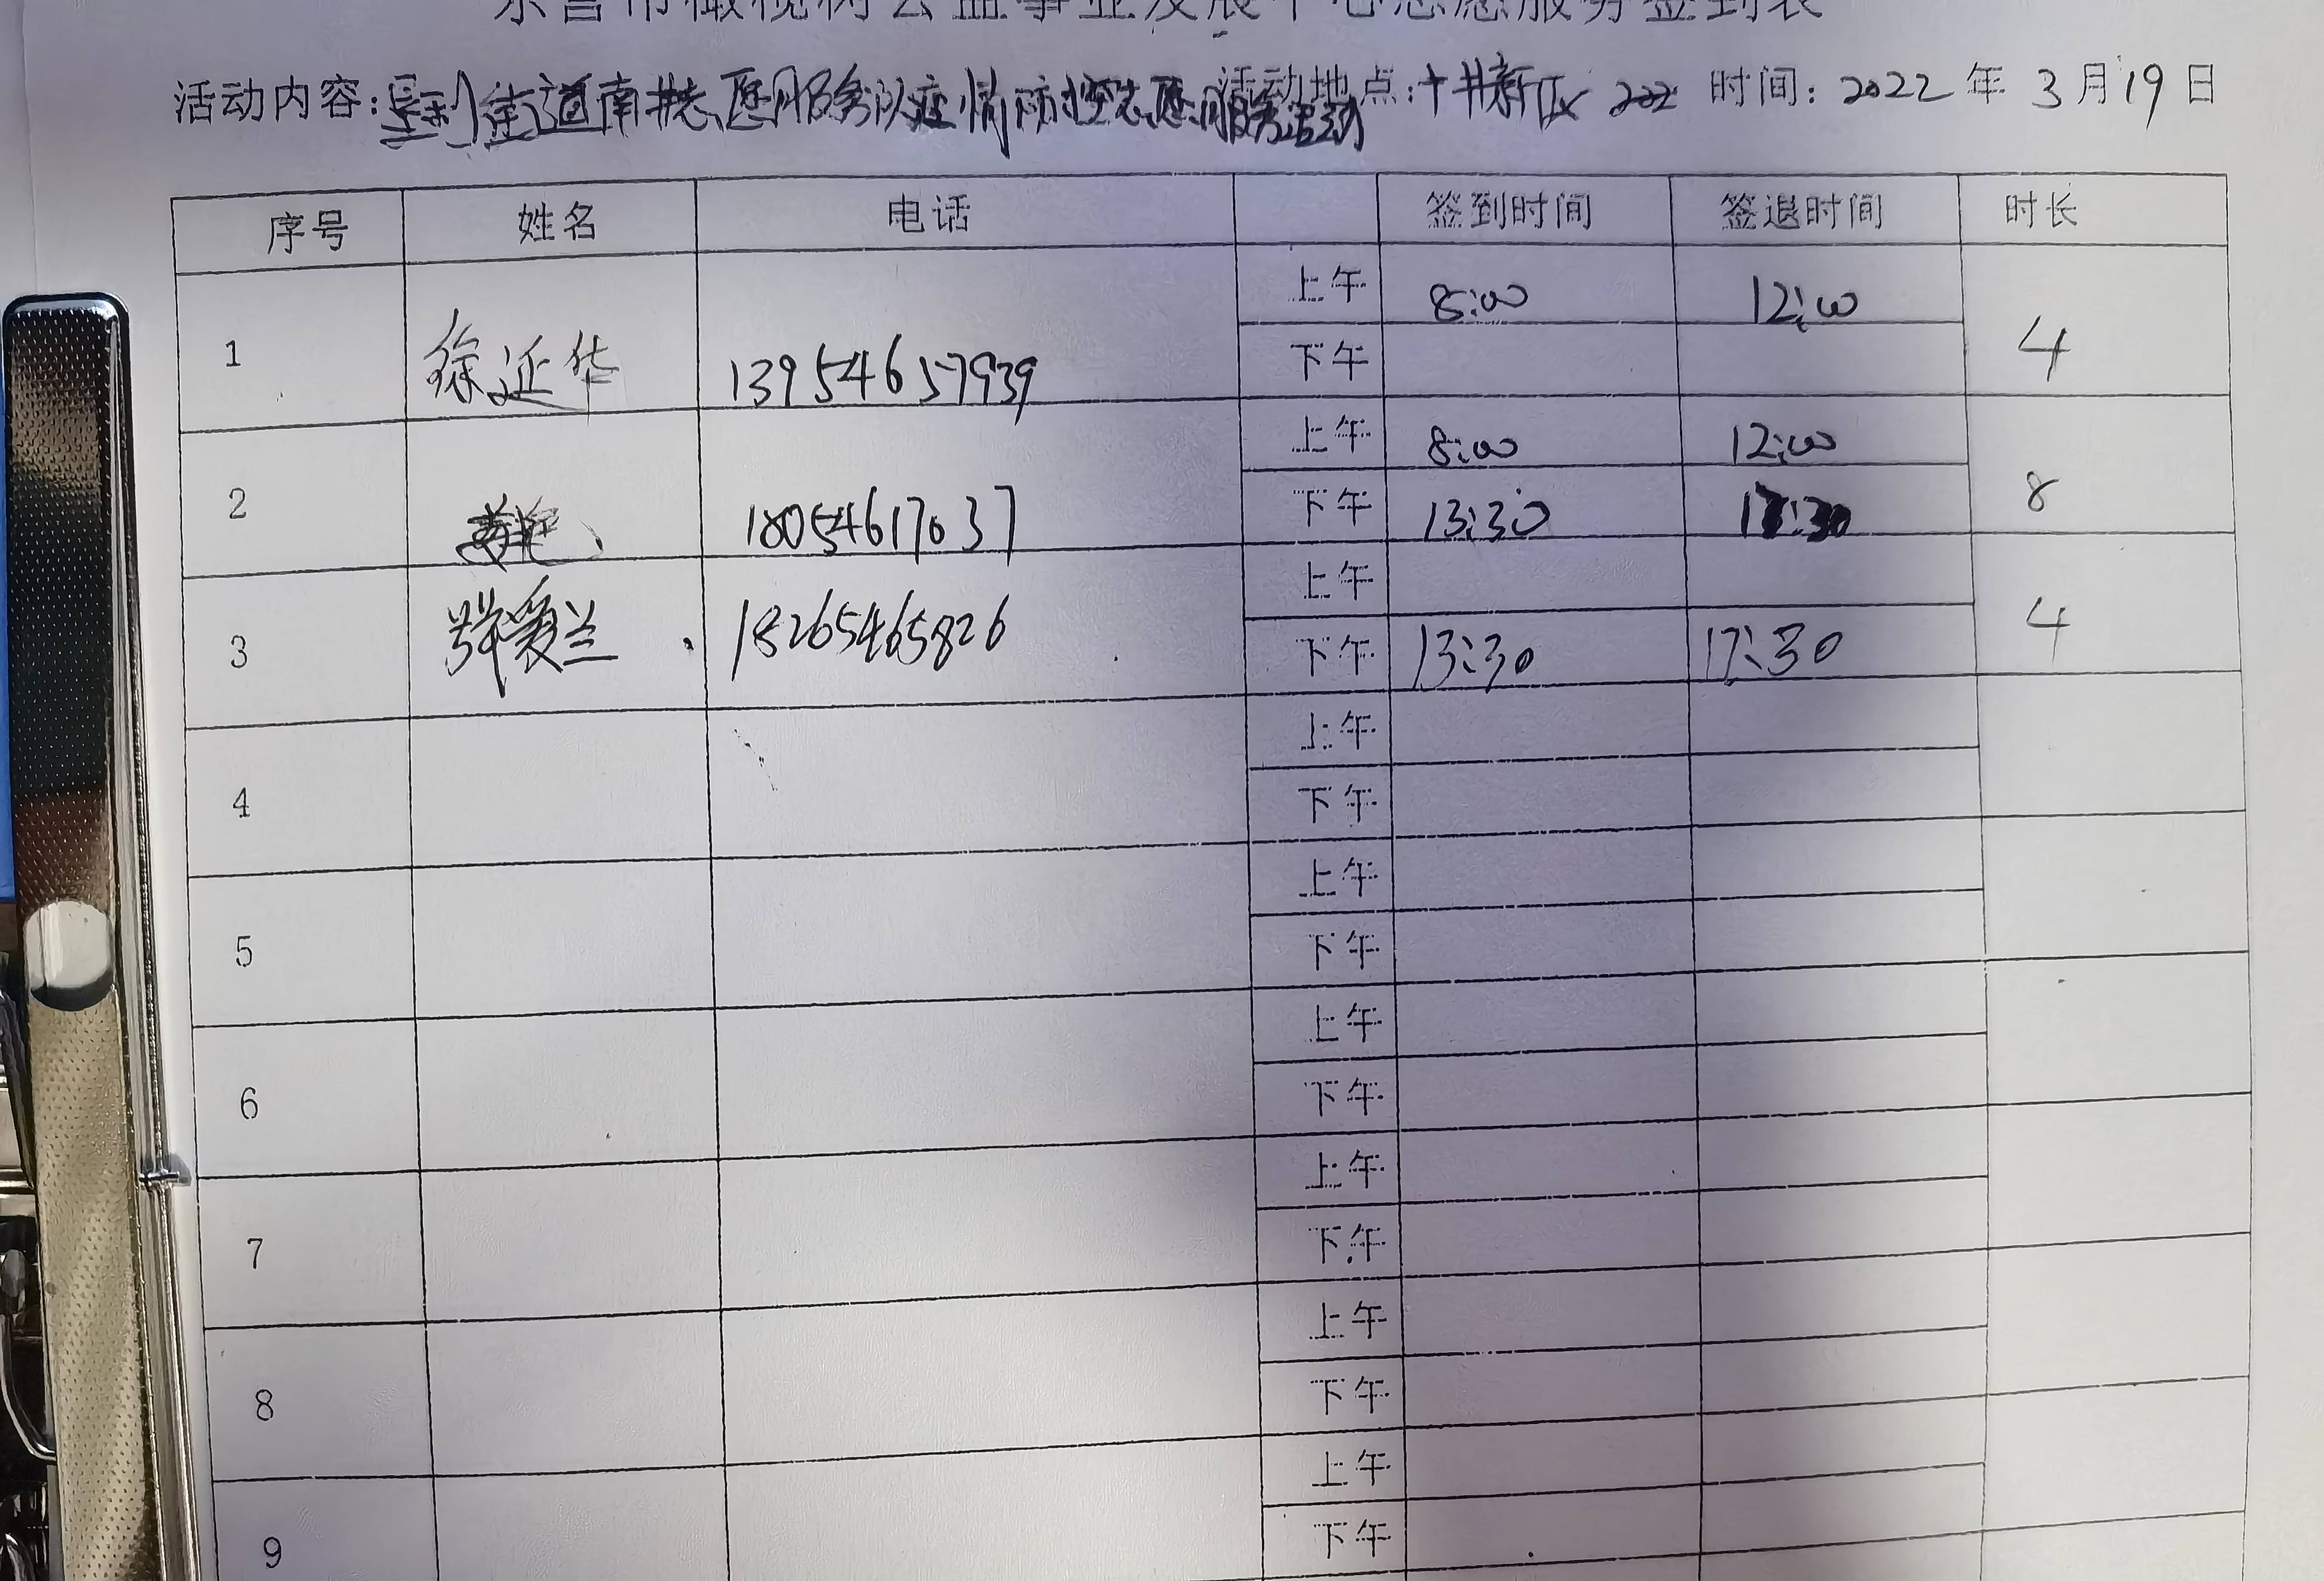 东营市橄榄树公益事业发展中心志愿服务签到表
活动内容:垦利街道南井志愿服务队疫情防控志愿服务活动 活动地点:十井新区 时间:2022年3月19日
序号 姓名 电话 签到时间 签退时间 时长
1 徐延华 13954657939 上午 8:00 12:00 4
下午
2 18054617037 上午 8:00 12:00 8
下午 13:30 17:30
3 爱兰 18265465826 上午 4
下午 13:30 17:30
4 上午
下午
5 上午
下午
6 上午
下午
7 上午
下午
8 上午
下午
9 上午
下午